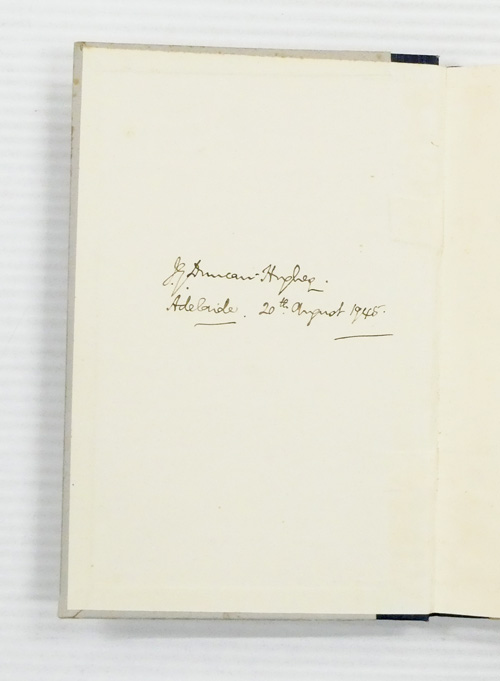 J.G. Duncan-Hughes.
Adelaide. 20th August 1945.